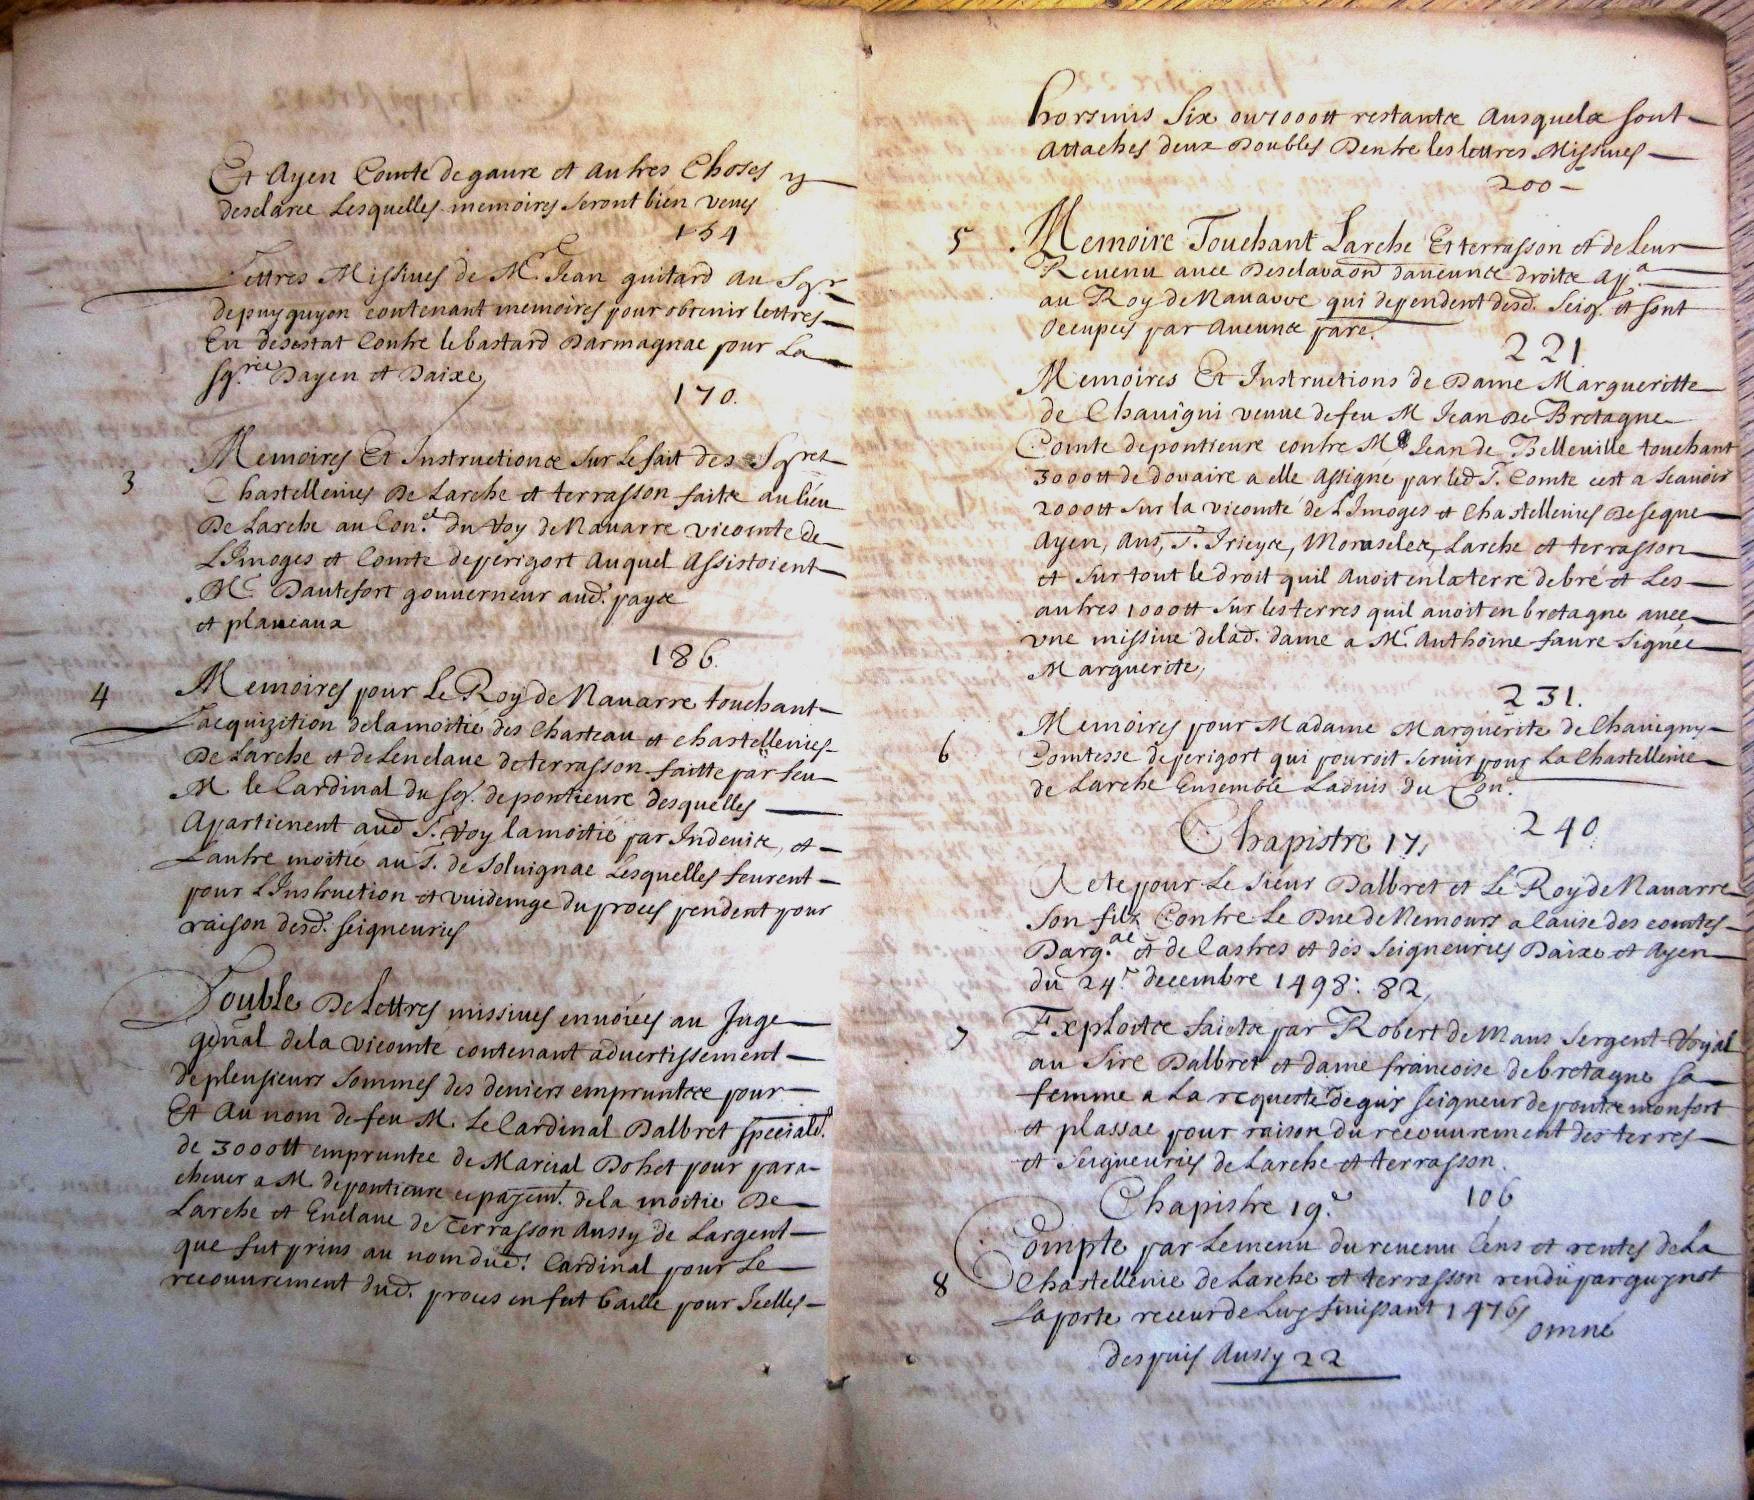 Et Ayen Comte de gaure et autres Choses y
desclaree Lesquelles memoires seront bien veues
154
Lettres Missives de Mr. Jean guitard au Sgr
depuyguyon contenant memoires pour obtenir lettres
En desestat Contre le bastard Darmagnac pour La
sgrie Dayen et Daixe,
170.
3 Memoires Et Instructions sur le fait des Sgres
Chastellenies De Larche et terrasson faite au lieu
De Larche au Con.el du Roy de Navarre vicomte de
LImoges et Comte deperigort Auquel Assistoient
Mr Dautefort gouverneur aud. paye
et plaueaux
186.
4 Memoires pour Le Roy de Navarre touchant
Lacquizition delamoitie des Chasteau et chastellenies
De Larche et de Lenclave de terrasson faitte par feu
M. le Cardinal du sgr. de pontieure desquelles
Apartienent aud S. Roy lamoitié par Indevise, et
Lautre moitié au S. de Soluignac Lesquelles feurent
pour LInstruction et vuidenge du proces pendent pour
raison desd. seigneuries
Double De Lettres missives envoiées au Juge
gñal dela vicomté contenant advertissement
de pleusieurs sommes des deniers empruntee pour
Et Au nom de feu M. Le Cardinal Dalbret speciald.
de 3000tt empruntee de Marcial Dohet pour para-
chever a M. de pontieure ce pajemt. de la moitie De
Larche et Enclave de Terrasson Aussy de Largent
que fut prins au nom dud. Cardinal pour Le
recouvrement dud. proces en fut baille pour Icelles
horsmis Six ou 7000tt restante Ausquele sont
Attaches deux Doubles Dentre les lettres Missives
200
5 Memoire Touchant Larche Et terrasson et de Leur
Revenu avec Desclavaon daucune droite ap.a
au Roy de Navarre qui dependent desd. Seig. et sont
Occupees par Aucune pare.
221.
Memoires Et Instructions de Dame Margueritte
de Chauigni veuue de feu M Jean De Bretagne
Comte de pontieure contre Mr Jean de Belleuille touchant
3000tt de douaire a elle Assigne par led S. Comte cest a scauoir
2000tt sur la vicomté de LImoges et Chastellenies De segue
Ayen, Ans, S. Irieye, Moruscle, Larche et terrasson
et sur tout le droit quil Auoit en la terre de bré et Les
autres 1000tt sur les terres quil auoit en bretagne auec
vne missiue delad. dame a Mr. Anthoine faure signée
Marguerite,
231.
6 Memoires pour Madame Marguerite de Chauigny
Comtesse de perigort qui pouroit seruir pour La Chastellenie
de Larche Ensemble Laduis du Con.
240
Chapistre 17,
Acte pour Le Sieur Dalbret et Le Roy de Navarre
son filz Contre Le Duc de Nemours a Cause des comtes
Darg.ac et de Castres et des Seigneuries Daixe et Ayen
du 24.e decembre 1498: 82,
7 Exploite faicte par Robert de Maus Sergent Royal
au Sire Dalbret et dame francoise de bretagne sa
femme a La requeste de guy seigneur de ponte monfort
et plassac pour raison du recouurement des terres
et Seigneuries de Larche et terrasson.
106
Chapistre 19.e
8 Compte par Lemenu du reuenu Cens et rentes de La
Chastellenie de Larche et terrasson rendu par guynot
Laporte receur de Luy finissant 1476,
omné
despuis Aussy 22